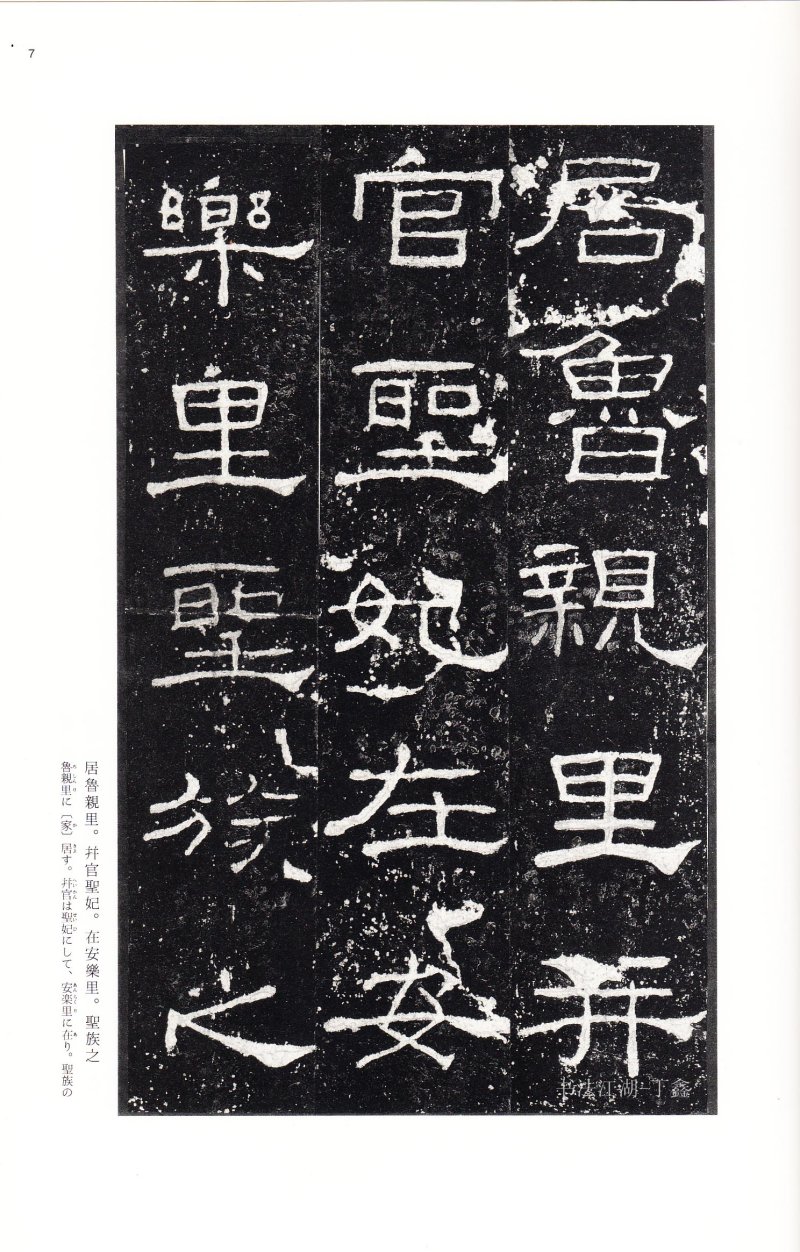 7
居魯親里并
官聖妃在安
樂里聖族之
书法江湖-丁鑫
居魯親里。幷官聖妃。在安樂里。聖族之
魯親里に〔家〕居す。幷官は聖妃にして、安楽里に在り。聖族の